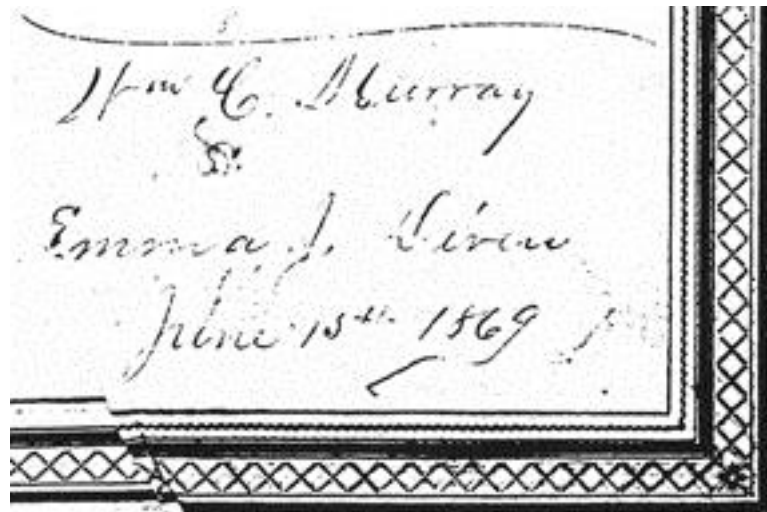 Wm C. Murray
&
Emma J. Liven
June 15th 1869